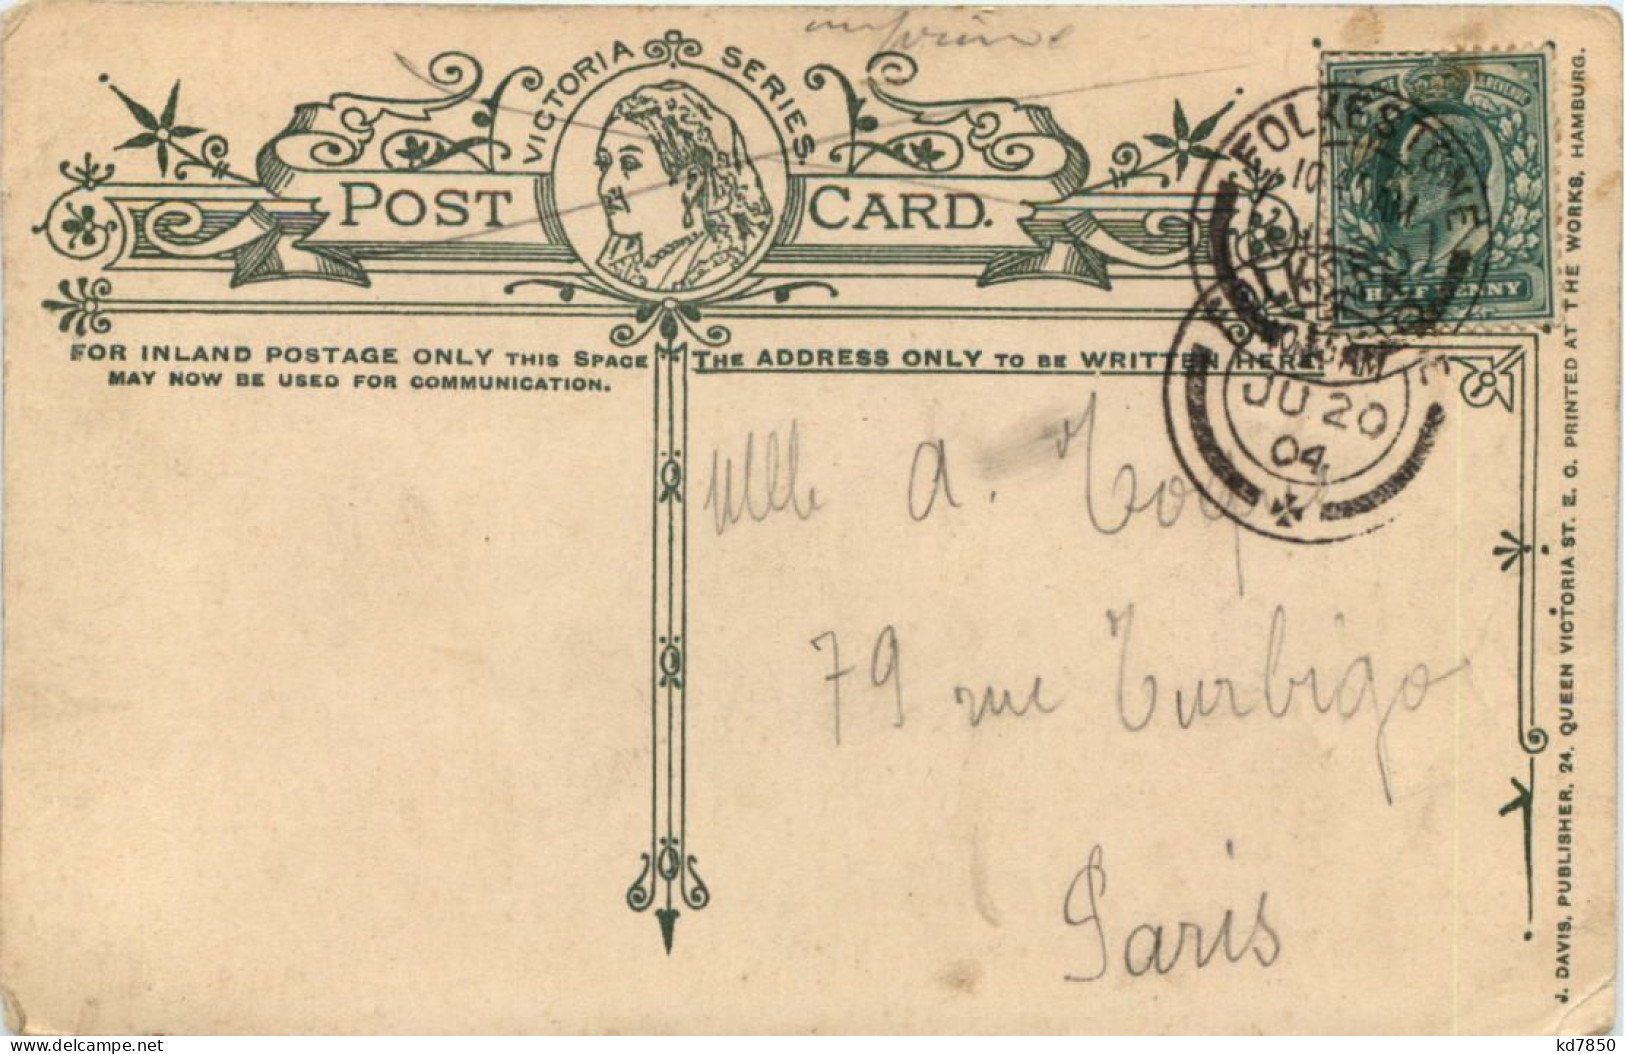 imprimé
VICTORIA SERIES.
POST CARD.
FOR INLAND POSTAGE ONLY THIS SPACE
MAY NOW BE USED FOR COMMUNICATION.
THE ADDRESS ONLY TO BE WRITTEN HERE.
FOLKESTONE
HALF PENNY
JU 20
04
Mlle A.
79 rue Turbigo
Paris
J. DAVIS, PUBLISHER, 24, QUEEN VICTORIA ST. E. C. PRINTED AT THE WORKS, HAMBURG.
kd7850